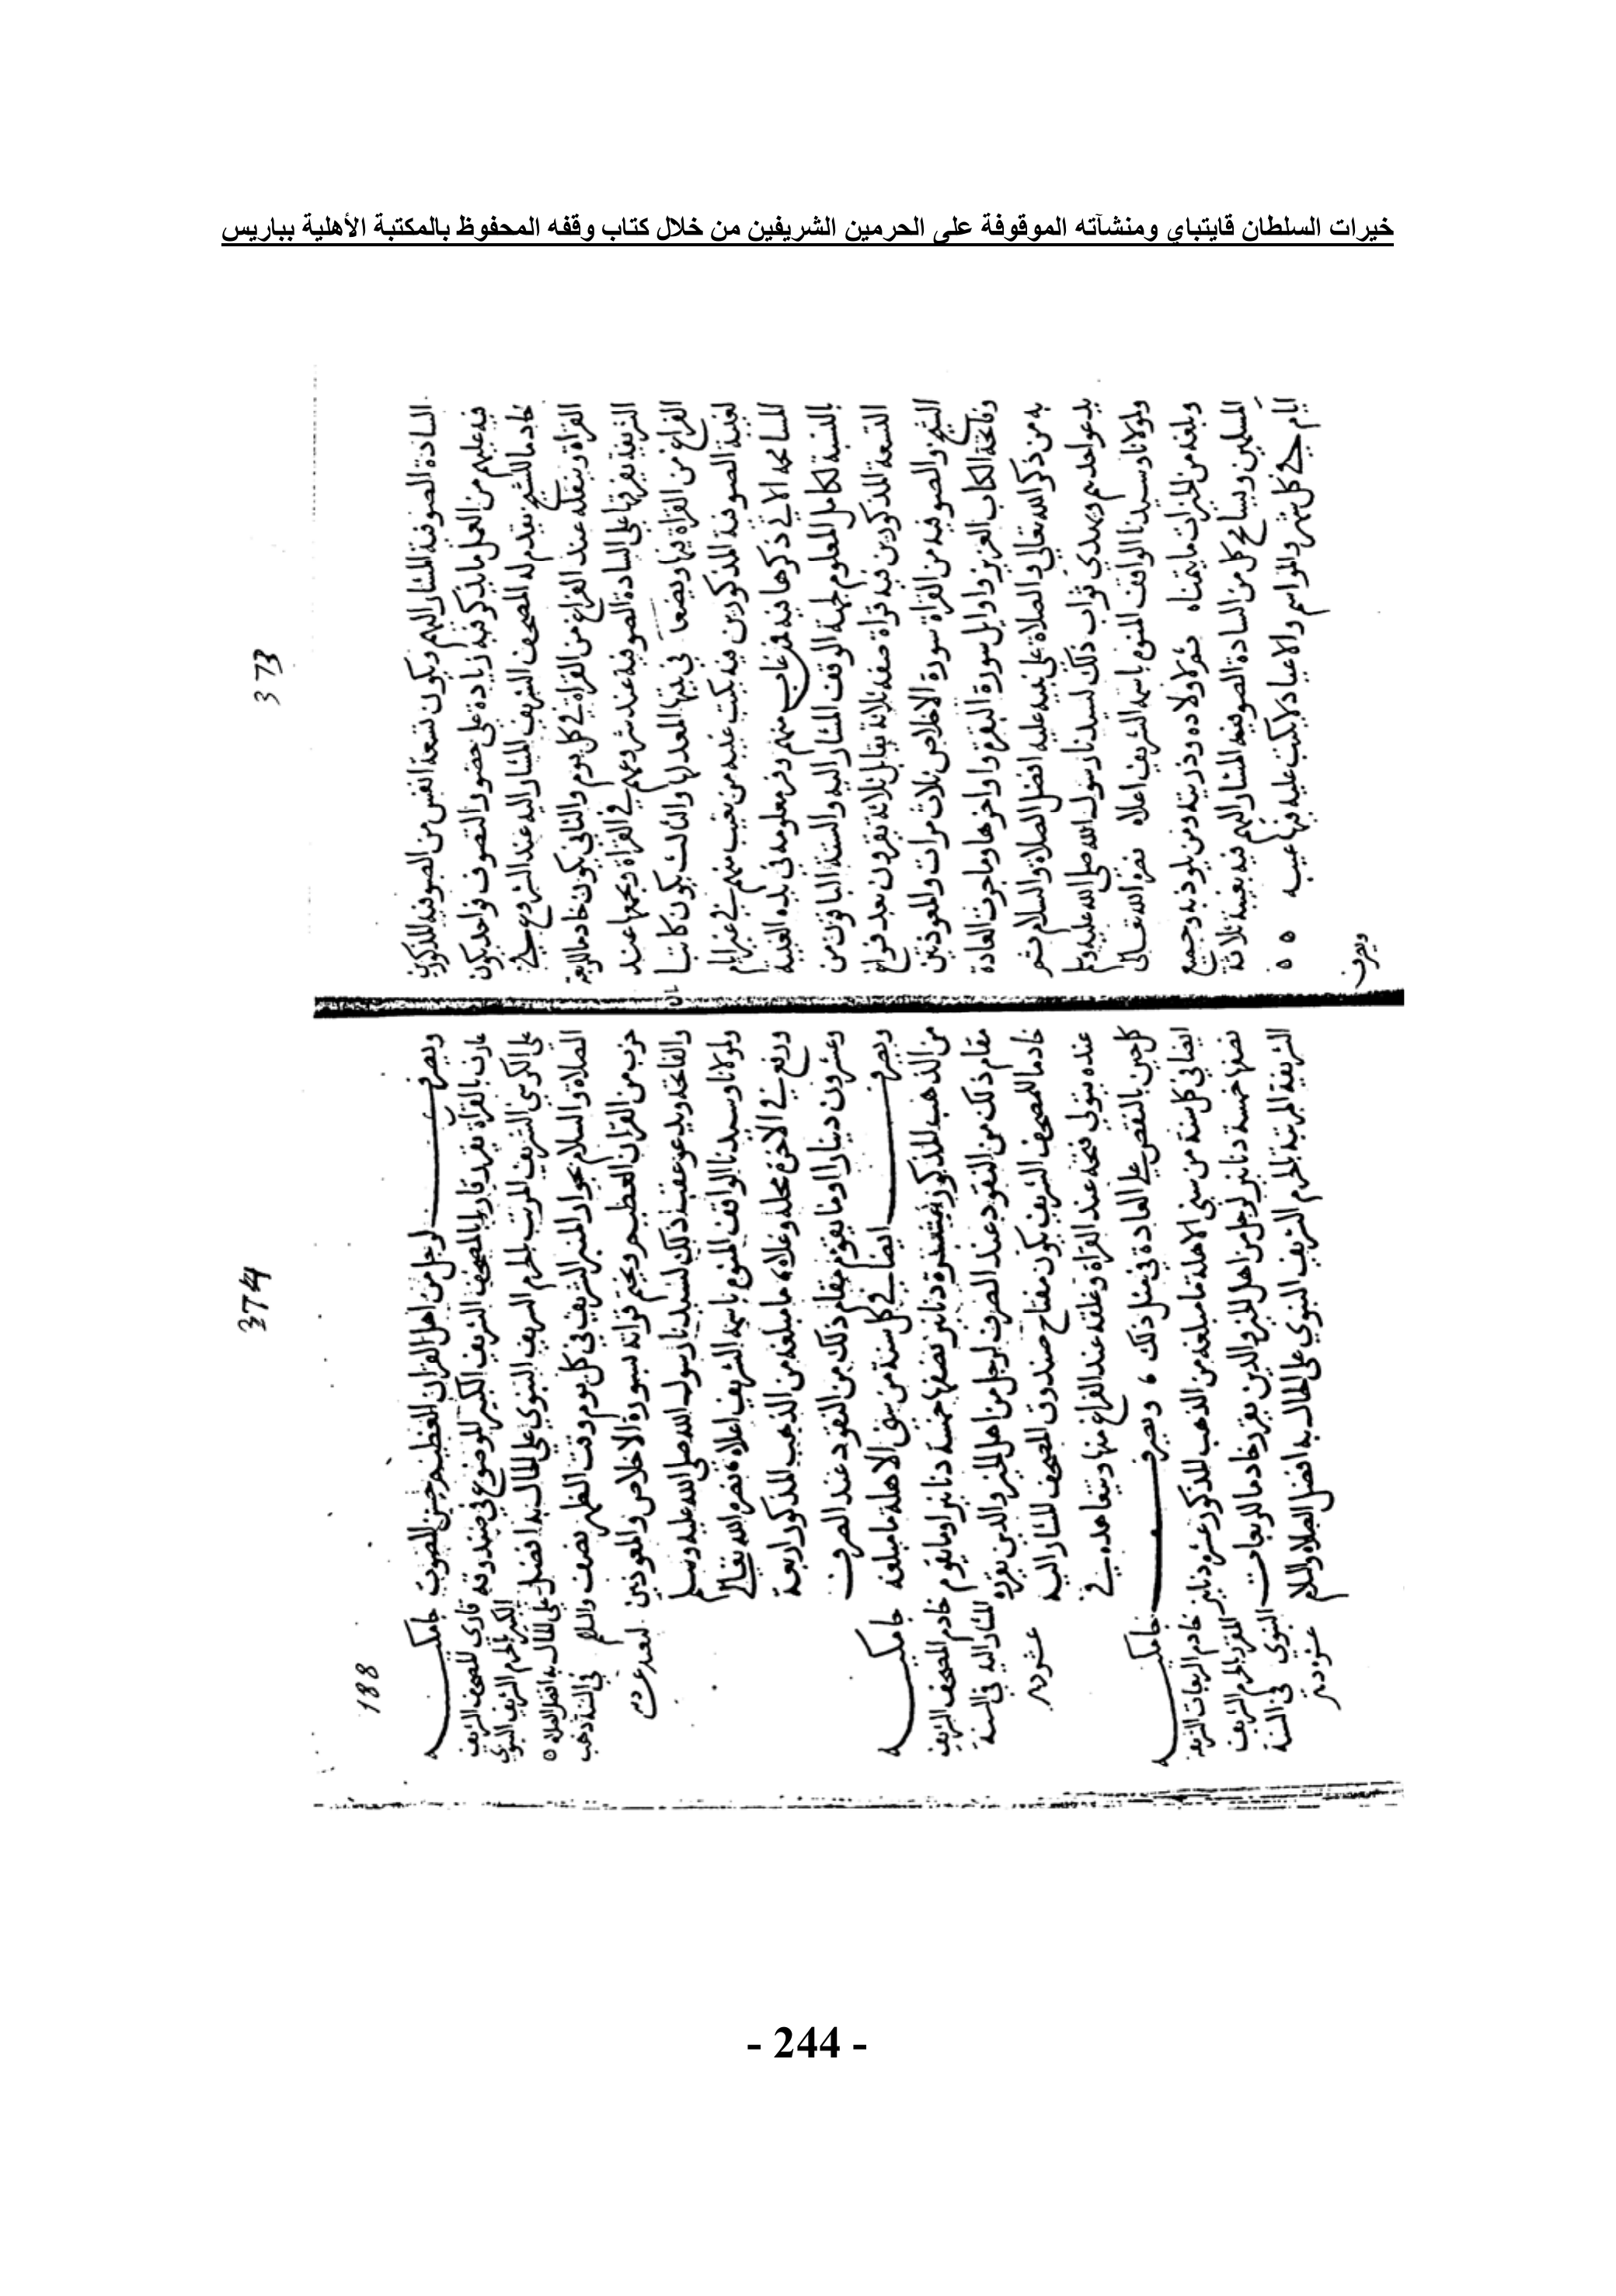 خيرات السلطان قايتباي ومنشآته الموقوفة على الحرمين الشريفين من خلال كتاب وقفه المحفوظ بالمكتبة الأهلية بباريس
373
السادة الصوفية المشار اليهم ويكون تسعة انفس من الصوفية المذكورين
فيه عليهم من العمل ما يذكر فيه زيادة على حضور التصوف فواحد يكون
خادما للشيخ يقدم له المصحف الشريف المشار اليه عند الشروع في
القراة وينقله عند الفراغ من القراة في كل يوم والثاني يكون خادما للربعة
الشريفة يفرقها على السادة الصوفية عند شروعهم في القراة ويجمعها عند
الفراغ من القراة فيها ويضعها في بيتها المعد لها والثالث يكون كاتبا
لغيبة الصوفية المذكورين فيه يكتب غيبة من تغيب منهم في غير ايام
المسامحة الاتي ذكرها فيه فمن غاب منهم وفر معلومه في مدة الغيبة
بالنسبة لكامل المعلوم لجهة الوقف المشار اليه والستة الباقون من
التسعة المذكورين فيه قراة صفه ثلاثة يقابل ثلاثة يقرون بعد فراغ
الشيخ والصوفية من القراة سورة الاخلاص ثلاث مرات والمعوذتين
وفاتحة الكتاب العزيز واوايل سورة البقرة واواخرها وما جرت العادة
به من ذكر الله تعالى والصلاة على نبيه عليه افضل الصلاة والسلام ثم
يدعو احدهم ويهدي ثواب ذلك لسيدنا رسول الله صلى الله عليه وسلم
ولمولانا وسيدنا الواقف المنوه باسمه الشريف اعلاه نصره الله تعالى
وبلغه من الخيرات ما يتمناه ثم لاولاده وذريته ومن يلوذ به وجميع
المسلمين ويسامح كل من السادة الصوفية المشار اليهم فيه بغيبة ثلاثة
ايام في كل شهر والمواسم والاعياد لا يكتب عليه فيها غيبه
ويصرف
374
188
ويصرف لرجل من اهل القران العظيم حسن الصوت
عارف بالقراة يقرر قاريا بالمصحف الشريف الكبير الموضوع في صندوقه
على الكرسي الشريف المرتب بالحرم الشريف النبوي على الحال به افضل
الصلاة والسلام بجوار المنبر الشريف في كل يوم وقت الظهر نصف
حزب من القران العظيم ويختم قراته بسورة الاخلاص والمعوذتين
والفاتحة ويدعو عقب ذلك لسيدنا رسول الله صلى الله عليه وسلم
ولمولانا وسيدنا الواقف المنوه باسمه الشريف اعلاه نصره الله تعالى
ورفع في الاخرة محله وعلاه ما مبلغه من الذهب المذكور اربعة
وعشرون دينارا او ما يقوم مقام ذلك من النقود عند الصرف
ويصرف ايضا في كل سنة من سني الاهلة ما مبلغه
من الذهب المذكور عشرة دنانير نصفها خمسة دنانير او ما يقوم
مقام ذلك من النقود عند الصرف لرجل من اهل الخير والدين يقرره
خادما للمصحف الشريف يكون مفتاح صندوق المصحف المشار اليه
عنده يتولى فتحه عند القراة وغلقه عند الفراغ منها ويتعاهده في
كل حين بالنفض على العادة في مثل ذلك ويصرف
ايضا في كل سنة من سني الاهلة ما مبلغه من الذهب المذكور عشرة دنانير
نصفها خمسة دنانير لرجل من اهل الخير والدين يقرر خادما للربعات
الشريفة المرتبة بالحرم الشريف النبوي على الحال به افضل الصلاة والسلام
جامكية
قارى المصحف الشريف
الكبير بالحرم الشريف النبوي
على الحال به افضل الصلاة
والسلام في السنة ذهب
جامكية
خادم المصحف الشريف
المشار اليه في السنة
جامكية
خادم الربعات الشريفة
المقررة بالحرم الشريف
النبوي في السنة
- 244 -